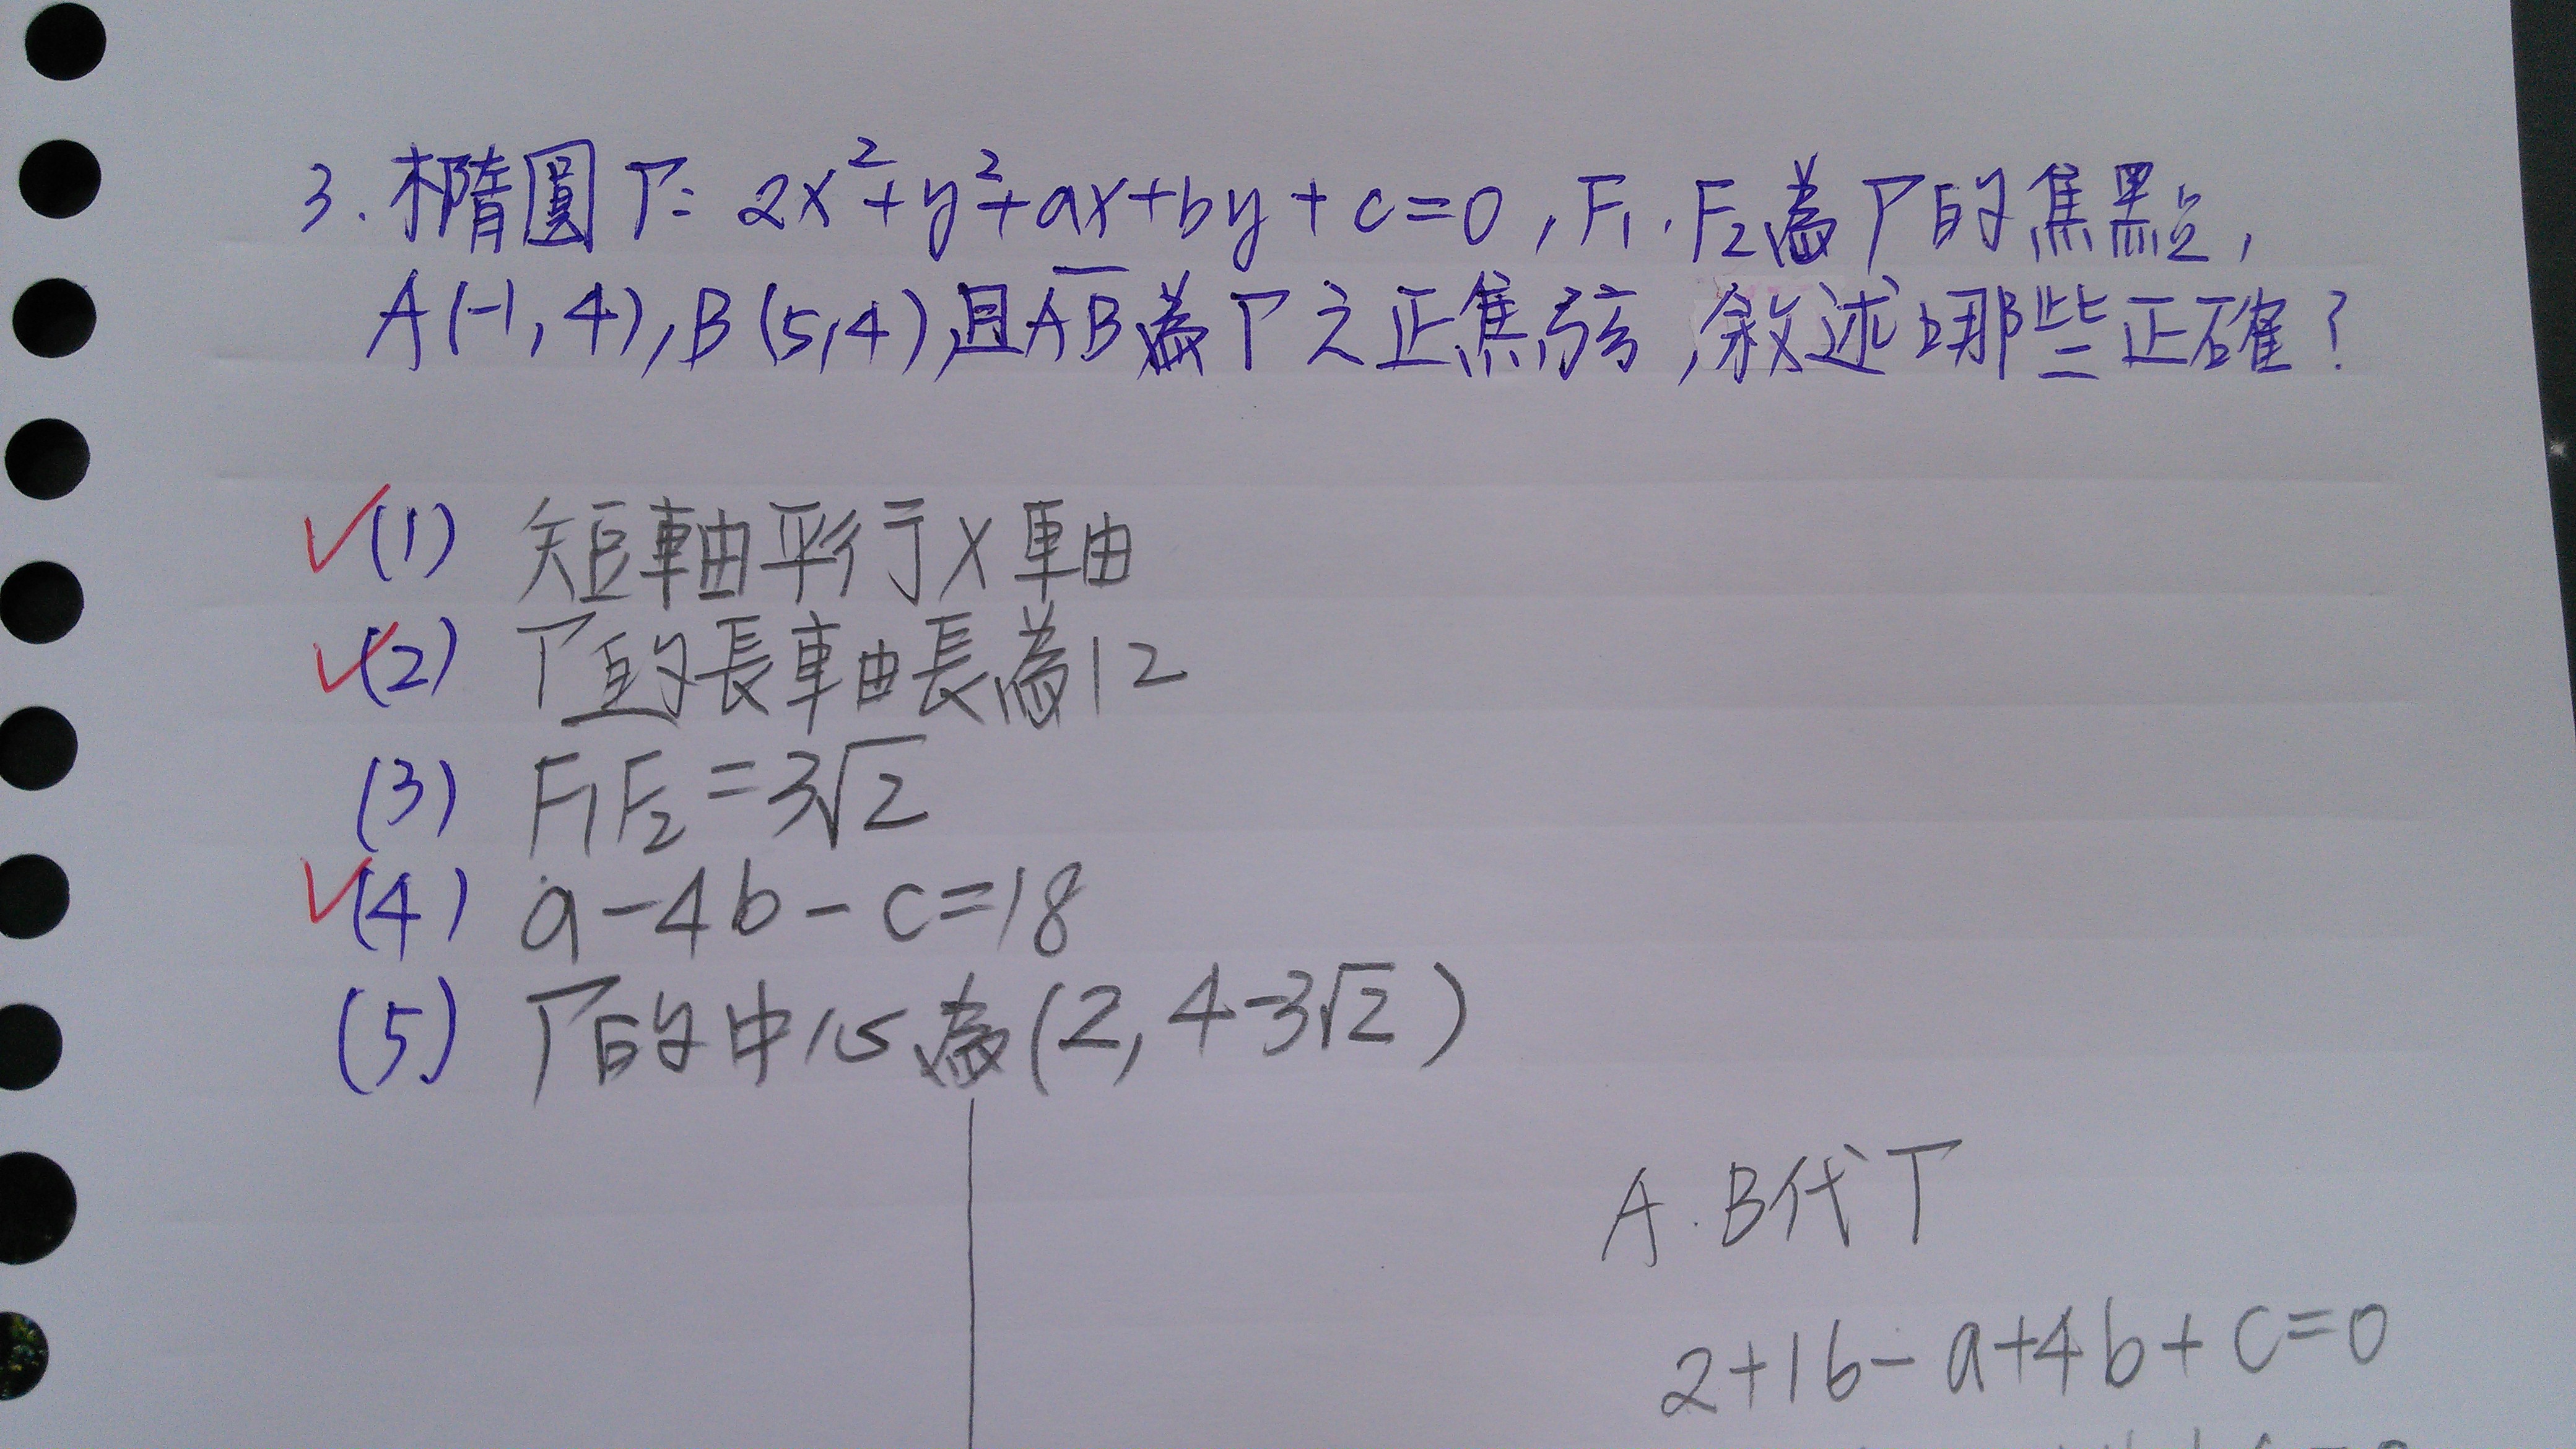 3. 橢圓Γ: 2x²+y²+ax+by+c=0, F₁, F₂為Γ的焦點,
A(-1,4), B(5,4), 且A̅B̅為Γ之正焦弦, 敘述哪些正確?
✓(1) 短軸平行X軸
✓(2) Γ的長軸長為12
(3) F₁F₂=3√2
✓(4) a-4b-c=18
(5) Γ的中心為(2, 4-3√2)
A.B代Γ
2+16-a+4b+c=0